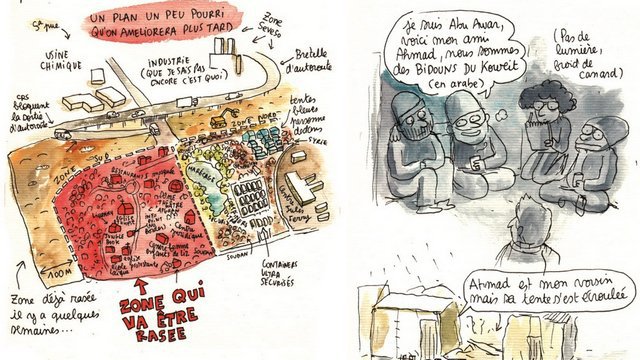 UN PLAN UN PEU POURRI
QU'ON AMÉLIORERA PLUS TARD
ZONE
Seveso
USINE
CHIMIQUE
INDUSTRIE
(QUE JE SAIS PAS
ENCORE C'EST QUOI)
Bretelle
d'autoroute
CRS
bloquant
la sortie
d'autoroute
tentes
bleues
personne
dedans
ZONE NORD
SYRIE
ZONE SUD
RESTAURANTS
MARÉCAGE
Centre
Jules
Ferry
SOUDAN
CONTAINERS
ULTRA
SÉCURISÉS
100M
Zone déjà rasée
il y a quelques
semaines...
ZONE QUI
VA ÊTRE
RASÉE
Je suis Abu Awar,
voici mon ami
Ahmad, nous sommes
des BIDOUNS DU KOWEIT
(en arabe)
(Pas de
lumière,
froid de
canard)
Ahmad est mon voisin
mais sa tente s'est écroulée